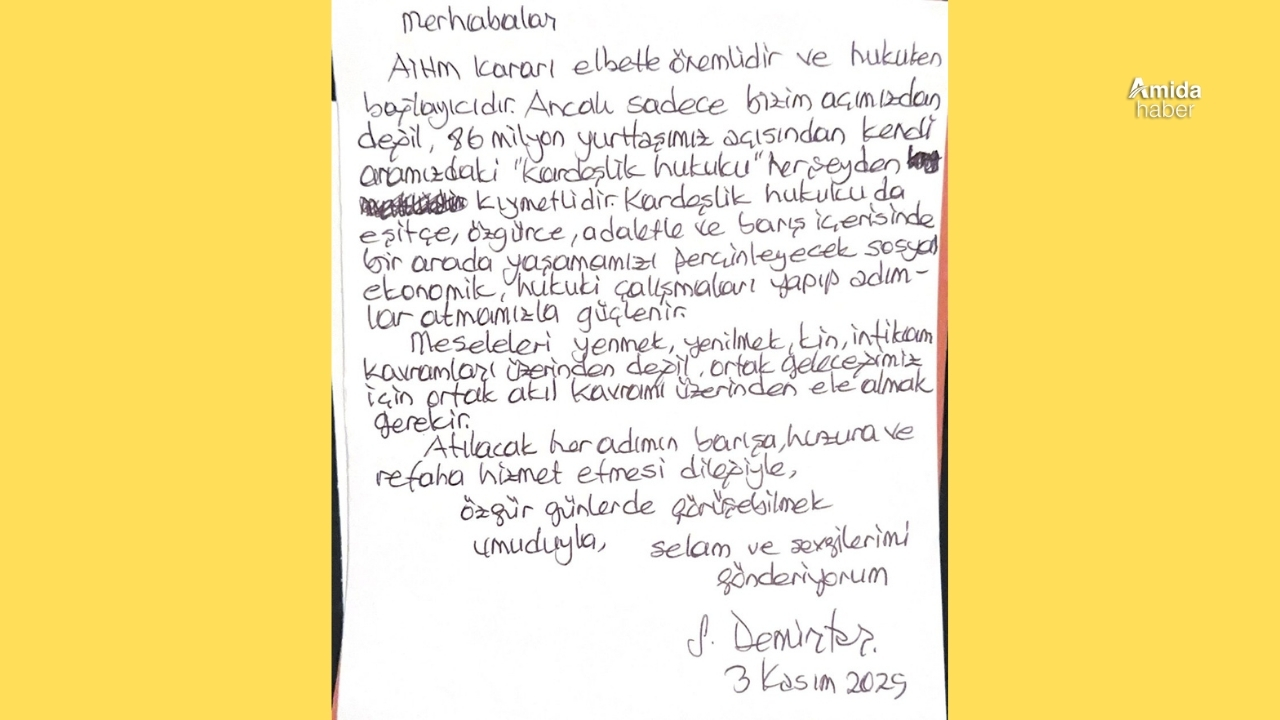 merhabalar
AİHM kararı elbette önemlidir ve hukuken
bağlayıcıdır. Ancak sadece bizim açımızdan
değil, 86 milyon yurttaşımız açısından kendi
aramızdaki "kardeşlik hukuku" herşeyden
kıymetlidir. Kardeşlik hukuku da
eşitçe, özgürce, adaletle ve barış içerisinde
bir arada yaşamamızı perçinleyecek sosyal
ekonomik, hukuki çalışmaları yapıp adım-
lar atmamızla güçlenir.
Meseleleri yenmek, yenilmek, kin, intikam
kavramları üzerinden değil, ortak geleceğimiz
için ortak akıl kavramı üzerinden ele almak
gerekir.
Atılacak her adımın barışa, huzura ve
refaha hizmet etmesi dileğiyle,
özgür günlerde görüşebilmek
umuduyla, selam ve sevgilerimi
gönderiyorum
S. Demirtaş.
3 Kasım 2025
Amida
haber